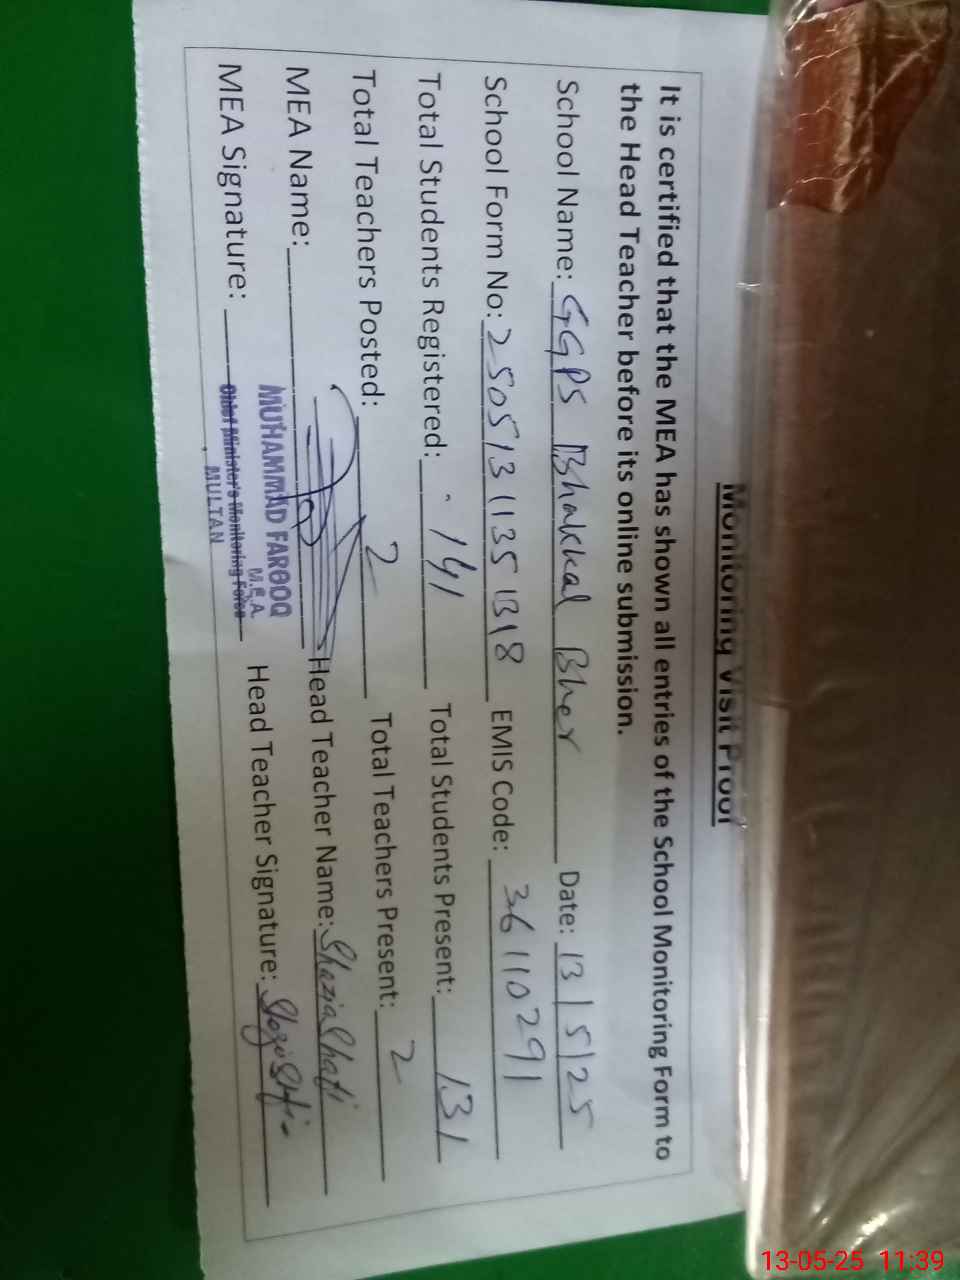 Monitoring Visit Proof
It is certified that the MEA has shown all entries of the School Monitoring Form to
the Head Teacher before its online submission.
School Name: GGPS Bhakkal Bher Date: 13/5/25
School Form No: 25051311351318 EMIS Code: 36110291
Total Students Registered: 141 Total Students Present: 131
Total Teachers Posted: 2 Total Teachers Present: 2
MEA Name: Head Teacher Name: Shazia Shafi
MEA Signature: Head Teacher Signature:
MUHAMMAD FAROOQ
M.E.A.
Chief Minister's Monitoring Force
MULTAN
13-05-25 11:39